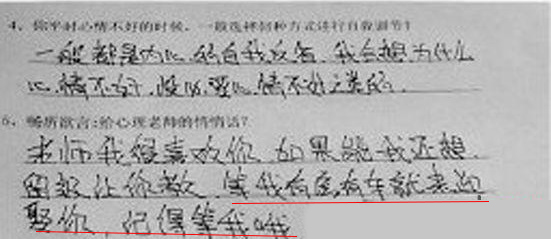 4、你平时心情不好的时候，一般选择何种方式进行自我调节？
一般都是内心的自我反省 我会想为什么
心情不好，没必要心情不好之类的
5、畅所欲言：给心理老师的悄悄话？
老师我很喜欢你 如果能 我还想
让你教 等我有房有车就来迎
娶你，记得等我哦